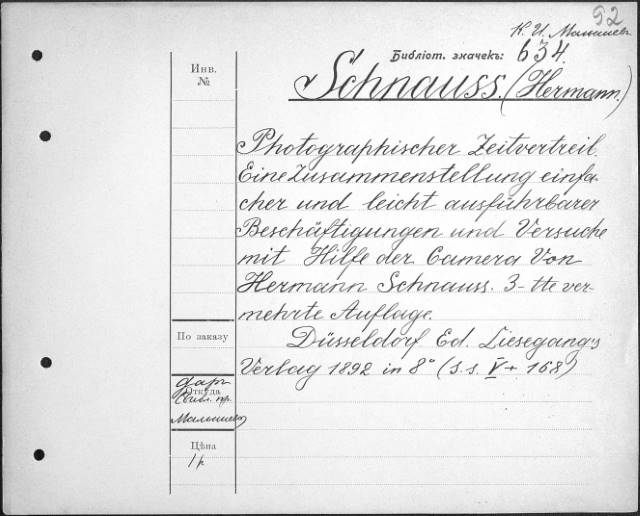 92
К. И. Малышев
Библіот. значекъ: 634.
Инв.
№
Schnauss. (Hermann.)
Photographischer Zeitvertreib.
Eine Zusammenstellung einfa-
cher und leicht ausführbarer
Beschäftigungen und Versuche
mit Hilfe der Camera Von
Hermann Schnauss. 3-tte ver-
mehrte Auflage.
Düsseldorf Ed. Liesegang's
Verlag 1892 in 8° (S.S. V + 168)
По заказу
Откуда
Малышева
Цѣна
1 р